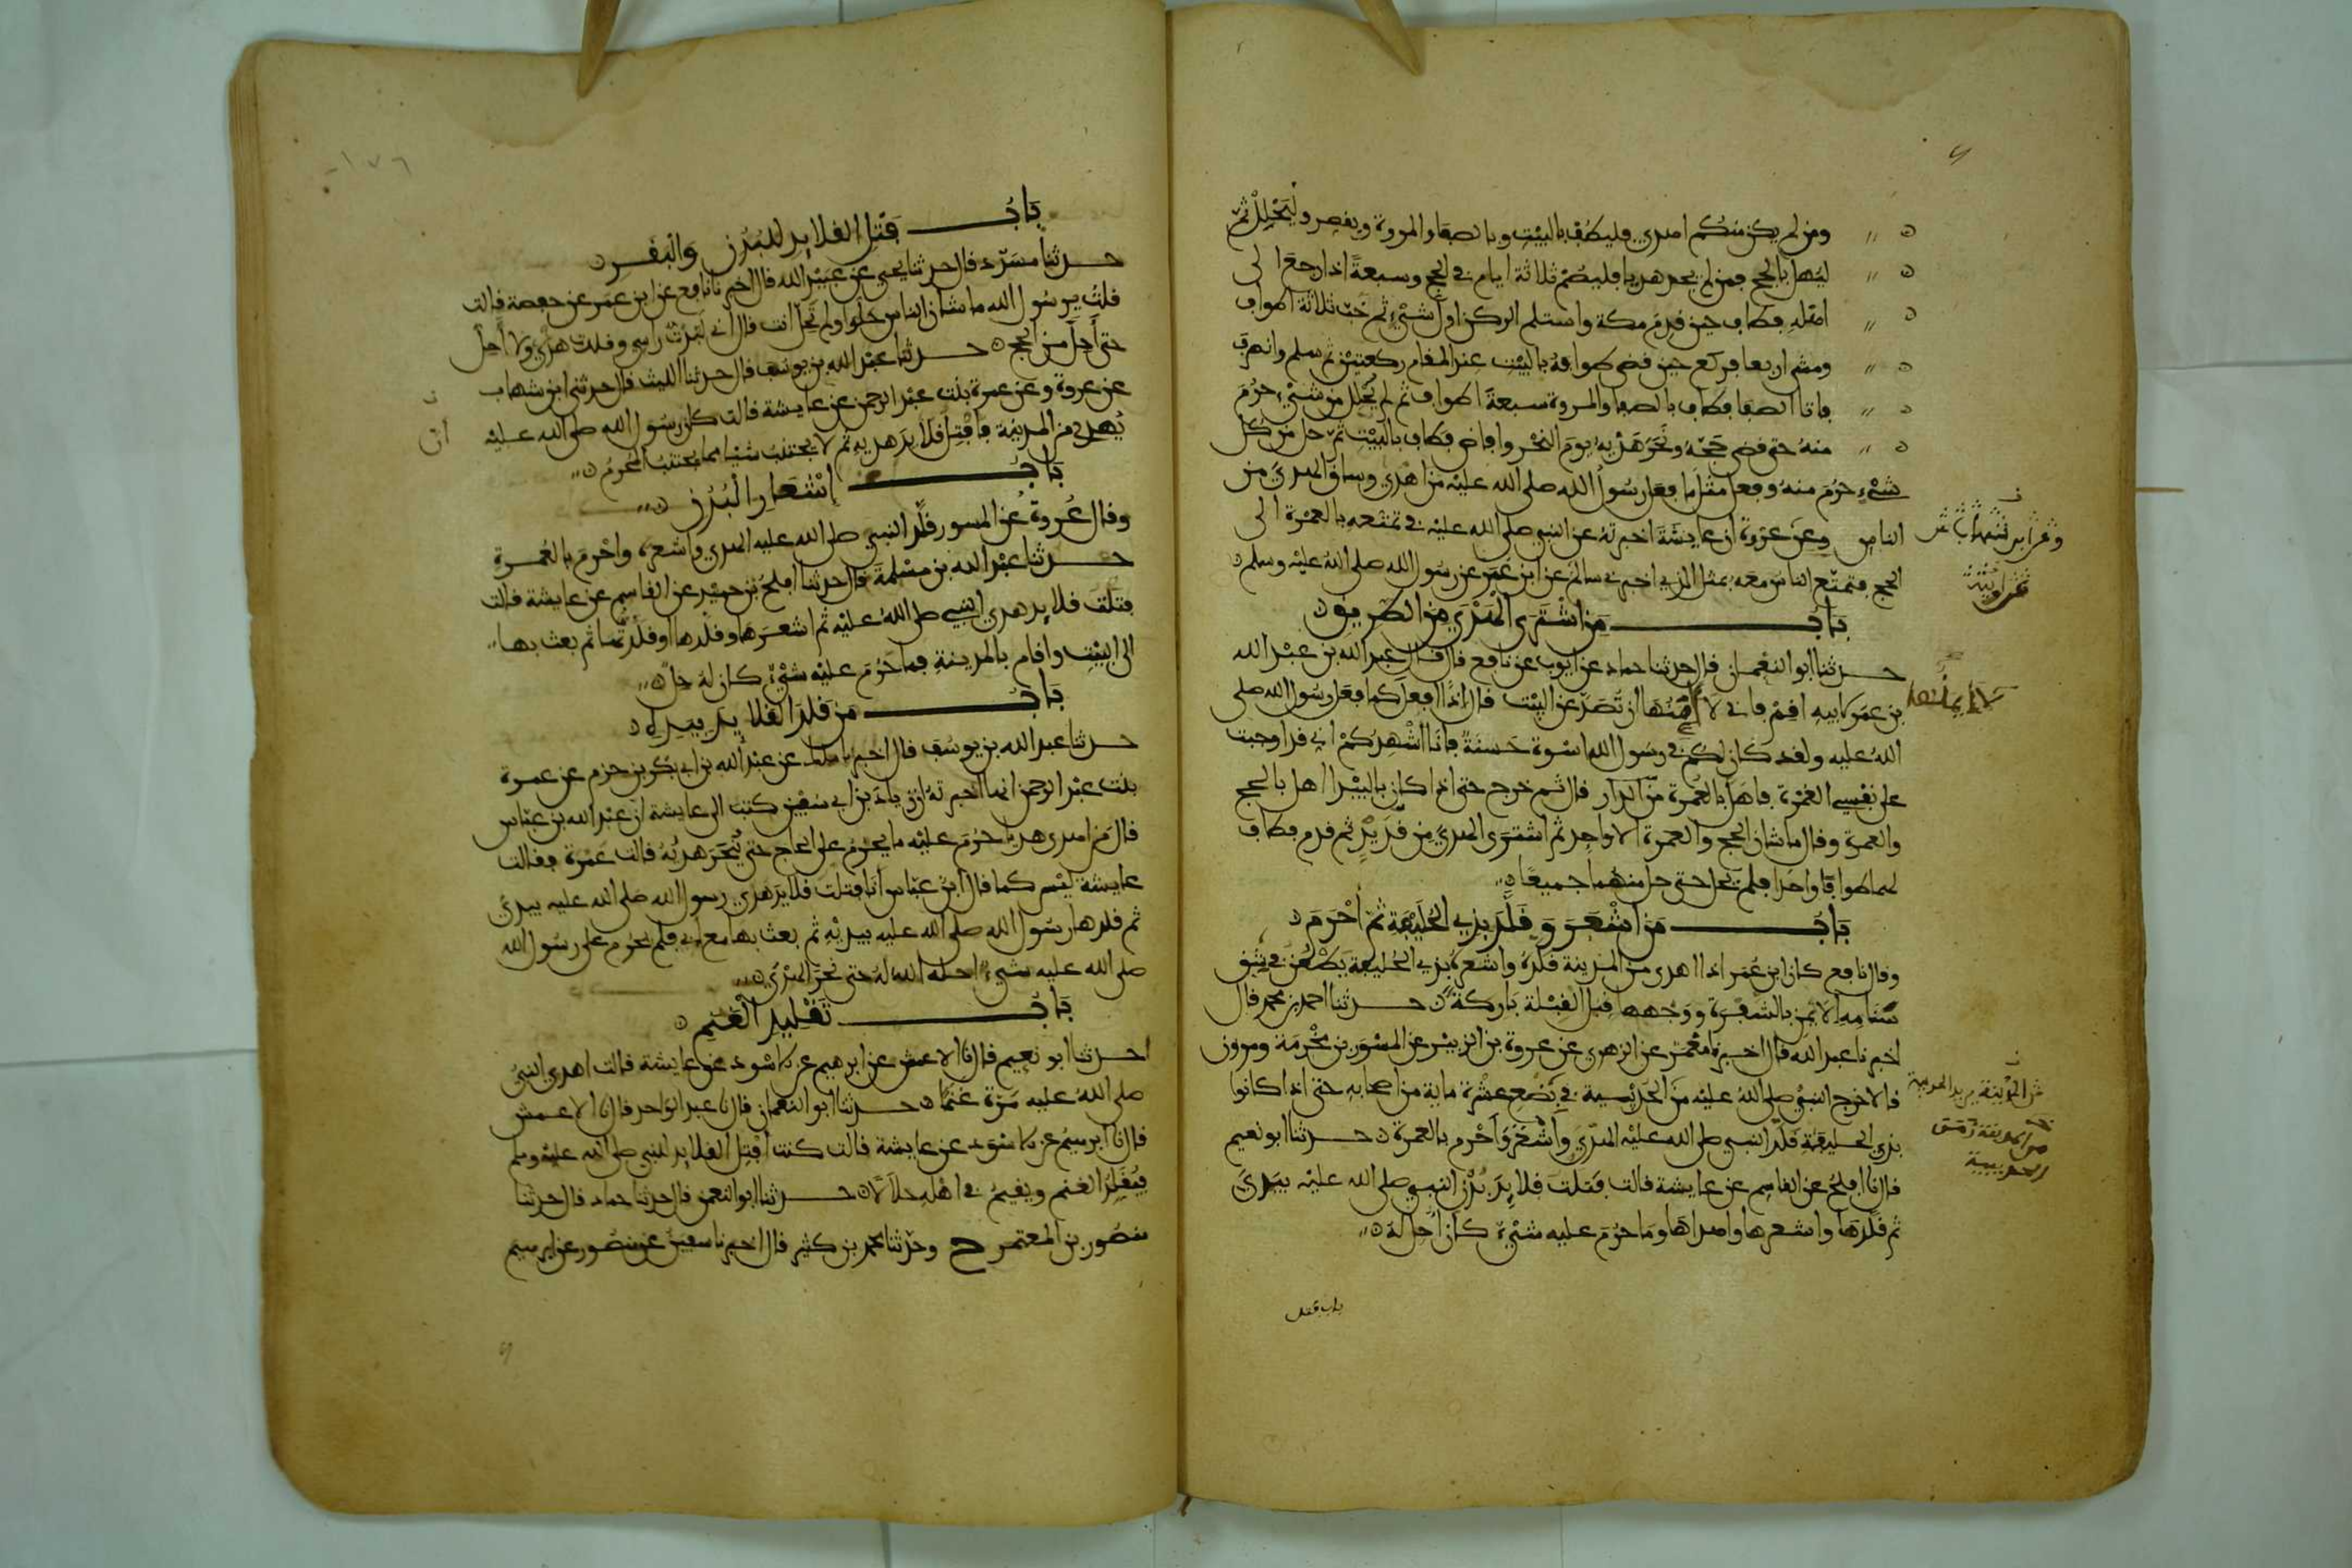 ومن لم يكن منكم اهدى فليطف بالبيت وبالصفا والمروة ويقصر وليحلل ثم
ليهل بالحج فمن لم يجد هديا فليصم ثلاثة ايام في الحج وسبعة اذا رجع الى
اهله فطاف حين قدم مكة واستلم الركن اول شيء ثم خب ثلاثة اطواف
ومشى اربعا فركع حين قضى طوافه بالبيت عند المقام ركعتين ثم سلم وانصرف
فاتا الصفا فطاف بالصفا والمروة سبعة اطواف ثم لم يحلل من شيء حرم
منه حتى قضى حجه ونحر هديه يوم النحر وافاض فطاف بالبيت ثم حل من كل
شيء حرم منه وفعل مثل ما فعل رسول الله صلى الله عليه من اهدى وساق الهدي من
الناس وعن عروة ان عايشة اخبرته عن النبي صلى الله عليه في تمتعه بالعمرة الى
الحج فتمتع الناس معه بمثل الذي اخبرني سالم عن ابن عمر عن رسول الله صلى الله عليه وسلم
باب من اشترى الهدي من الطريق
حدثنا ابو النعمان قال حدثنا حماد عن ايوب عن نافع قال قال عبد الله بن عبد الله
بن عمر لابيه اقم فاني لا آمنها ان تصد عن البيت قال اذا افعل كما فعل رسول الله صلى
الله عليه ولقد كان لكم في رسول الله اسوة حسنة فانا اشهدكم اني قد اوجبت
على نفسي العمرة فاهل بالعمرة من الدار قال ثم خرج حتى اذا كان بالبيدا اهل بالحج
والعمرة وقال ما شان الحج والعمرة الا واحد ثم اشترى الهدي من قديد ثم قدم فطاف
لهما طوافا واحدا فلم يحل حتى حل منهما جميعا
باب من اشعر وقلد بذي الحليفة ثم احرم
وقال نافع كان ابن عمر اذا اهدى من المدينة قلده واشعره بذي الحليفة يطعن في شق
سنامه الايمن بالشفرة ووجهها قبل القبلة باركة حدثنا احمد بن محمد قال
اخبرنا عبد الله قال اخبرنا معمر عن الزهري عن عروة بن الزبير عن المسور بن مخرمة ومروان
قالا خرج النبي صلى الله عليه من الحديبية في بضع عشرة ماية من اصحابه حتى اذا كانوا
بذي الحليفة قلد النبي صلى الله عليه الهدي واشعر واحرم بالعمرة حدثنا ابو نعيم
قال نا افلح عن القاسم عن عايشة قالت فتلت قلايد بدن النبي صلى الله عليه بيدي
ثم قلدها واشعرها واهداها وما حرم عليه شيء كان احل له
باب فتل
باب فتل القلايد للبدن والبقر
حدثنا مسدد قال حدثنا يحيى عن عبيد الله قال اخبرنا نافع عن ابن عمر عن حفصة قالت
قلت يرسول الله ما شان الناس حلوا ولم تحل انت قال اني لبدت راسي وقلدت هديي ولا احل
حتى احل من الحج حدثنا عبد الله بن يوسف قال حدثنا الليث قال حدثني ابن شهاب
عن عروة وعن عمرة بنت عبد الرحمن عن عايشة قالت كان رسول الله صلى الله عليه
يهدي من المدينة فافتل قلايد هديه ثم لا يجتنب شيا مما يجتنب المحرم
ان
باب اشعار البدن
وقال عروة عن المسور قلد النبي صلى الله عليه الهدي واشعره واحرم بالعمرة
حدثنا عبد الله بن مسلمة قال حدثنا افلح بن حميد عن القاسم عن عايشة قالت
فتلت قلايد هدي النبي صلى الله عليه ثم اشعرها وقلدها او قلدتها ثم بعث بها
الى البيت واقام بالمدينة فما حرم عليه شيء كان له حل
باب من قلد القلايد بيده
حدثنا عبد الله بن يوسف قال اخبرنا ملك عن عبد الله بن ابي بكر بن حزم عن عمرة
بنت عبد الرحمن انها اخبرته ان زياد بن ابي سفين كتب الى عايشة ان عبد الله بن عباس
قال من اهدى هديا حرم عليه ما يحرم على الحاج حتى ينحر هديه قالت عمرة فقالت
عايشة ليس كما قال ابن عباس انا فتلت قلايد هدي رسول الله صلى الله عليه بيدي
ثم قلدها رسول الله صلى الله عليه بيديه ثم بعث بها مع ابي فلم يحرم على رسول الله
صلى الله عليه شيء احله الله له حتى نحر الهدي
باب تقليد الغنم
حدثنا ابو نعيم قال نا الاعمش عن ابرهيم عن الاسود عن عايشة قالت اهدى النبي
صلى الله عليه مرة غنما حدثنا ابو النعمان قال نا عبد الواحد قال نا الاعمش
قال نا ابرهيم عن الاسود عن عايشة قالت كنت افتل القلايد للنبي صلى الله عليه وسلم
فيقلد الغنم ويقيم في اهله حلالا حدثنا ابو النعمن قال حدثنا حماد قال حدثنا
منصور بن المعتمر ح وحدثنا محمد بن كثير قال اخبرنا سفين عن منصور عن ابرهيم